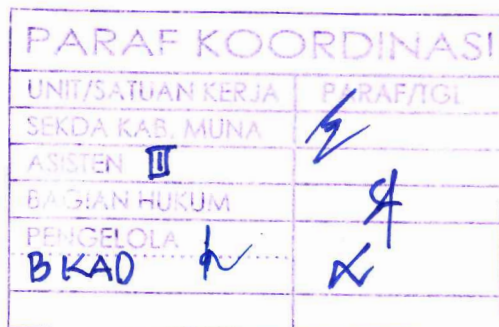 PARAF KOORDINASI
UNIT/SATUAN KERJA PARAF/TGL
SEKDA KAB. MUNA
ASISTEN III
BAGIAN HUKUM
PENGELOLA
BKAD